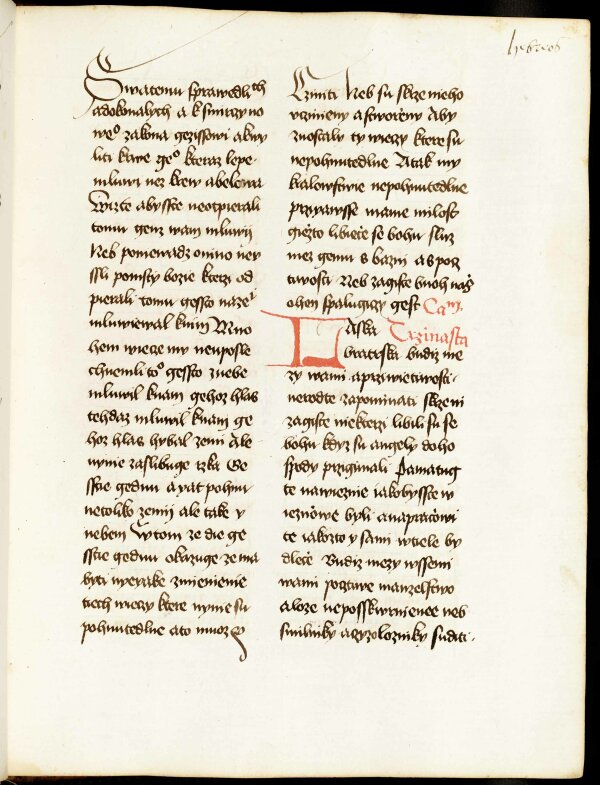 hebreos
Swatemu sprawedliwch
a dokonalych a k smirczy no
weo zakona gezissowi a krwy
liti krwe geo kteraz lepe
mluwi nez krew abelowa
Wizte abysste neotpierali
tomu genz wam mluwij
Neb poniewadz onino neu
ssli pomsty bozie kterzi od
pierali tomu gessto naze
mluwiewal knim Mno
hem wiecze my neuposle
chnemli to gessto znebe
mluwil knam gehoz hlas
tehdaz mluwil knam ge
hoz hlas hybal zemi Ale
nynie zaslibuge rzka Ge
sscie gednu a yat pohnu
netoliko zemij ale take y
nebem W tom ze die ge
sscie gednu okazuge ze ma
byti nyeyake zmienienie
tiech wieczy ktere nynie su
pohnutedlne a to mnoz
Cziniti Neb su skrze nieho
vcziueny a stworeny Aby
zuostaly ty wieczy ktere su
nepohnutedlne A tak my
kralowstwie nepohnutedlne
przigawsse mame milost
giezto libiece se bohu sluz
mez gemu s bazni a s pocz
tiwosti Neb zagiste buoh nas
ohen spalugiczy gest Cam
Trzinasta
Laska
bratrska budiz me
zy wami a przivietiwosti
nerodte zapominati skrze ni
zagiste niekterzi libili su se
bohu kdyz su angely do ho
spody przigimali Pamatug
te na wieznie iakobysste w
ieznowe byli a na praczowi
te iakozto y sami w tiele by
dlece Budiz mezy wssemi
wami pocztiwe manzelstwo
a loze neposskwrnienee neb
smilniky a czyzolozniky sudit